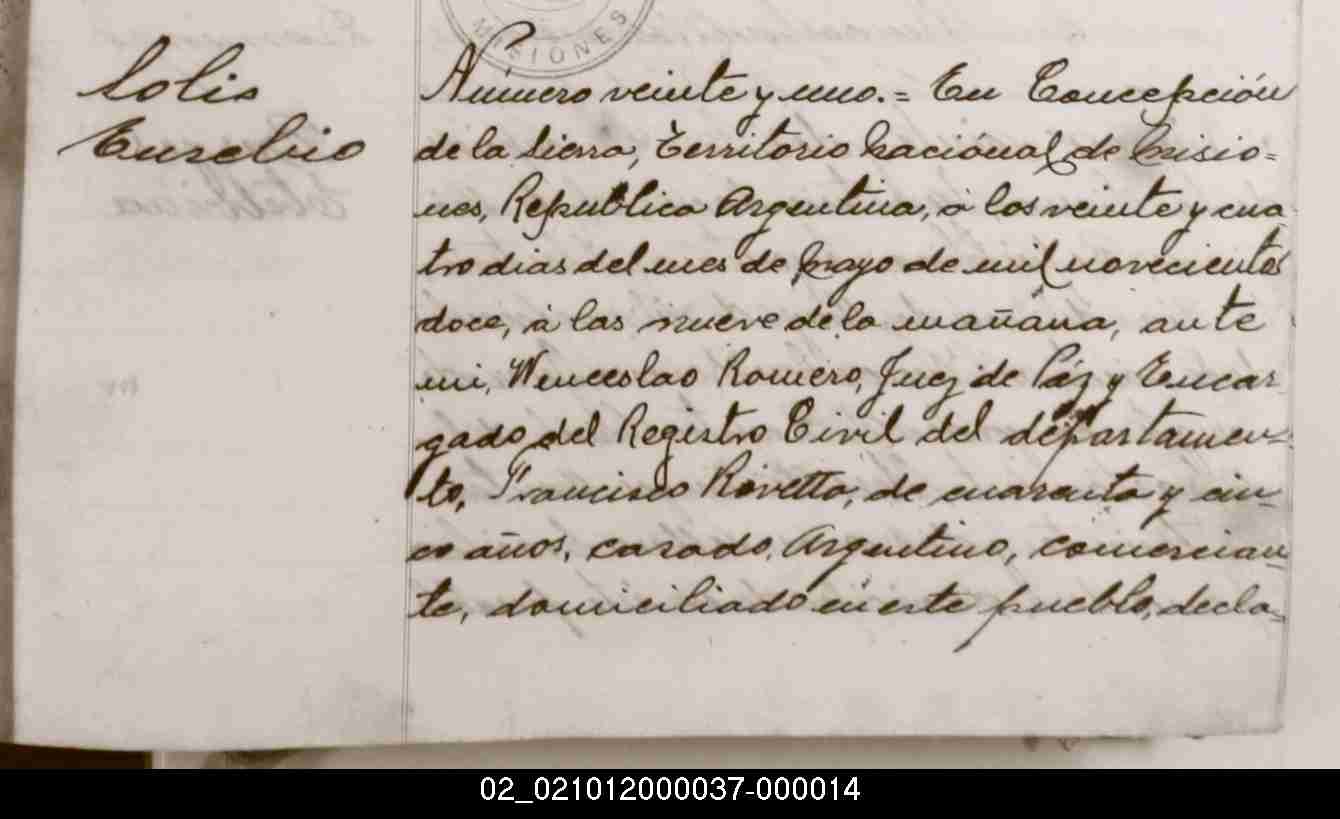 MISIONES
Solis
Eusebio
Número veinte y uno.= En Concepción
de la Sierra, Territorio Nacional de Misio=
nes, Republica Argentina, à los veinte y cua
tro dias del mes de Mayo de mil novecientos
doce, à las nueve de la mañana, ante
mi, Wenceslao Romero, Juez de Páz y Encar-
gado del Registro Civil del departamen-
to, Francisco Rovetta, de cuarenta y cin-
co años, casado, Argentino, comercian-
te, domiciliado en este pueblo, decla=
02_021012000037-000014